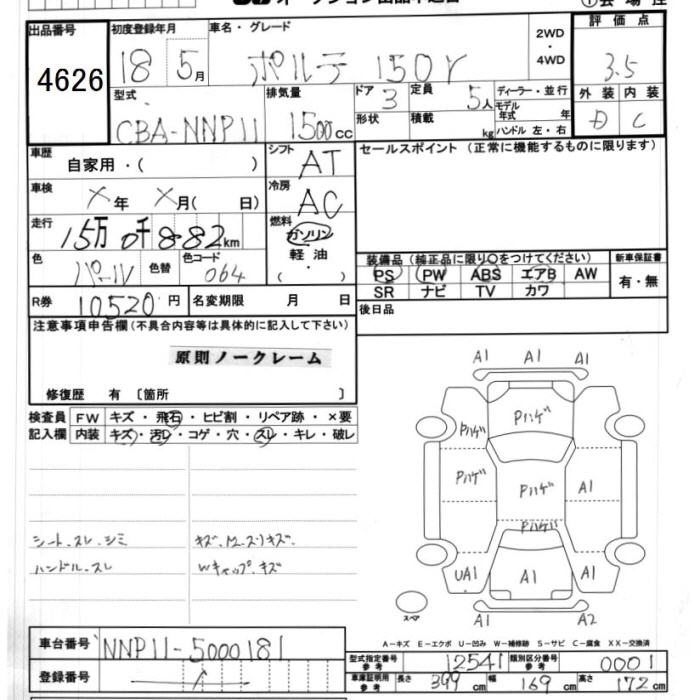 出品番号 4626
初度登録年月 18 5月
車名・グレード ポルテ 150r
2WD・4WD
評価点 3.5
型式 CBA-NNP11
排気量 1500cc
ドア 3
形状
定員 5人
積載 kg
ディーラー・並行
モデル年式 年
ハンドル 左・右
外装 内装
D C
車歴 自家用・( )
シフト AT
セールスポイント (正常に機能するものに限ります)
車検 ×年 ×月( 日)
冷房 AC
走行 15万0千882km
燃料 ガソリン・軽油・( )
色 パール 色替 色コード 064
装備品 (純正品に限り○をつけてください) 新車保証書
PS PW ABS エアB AW 有・無
SR ナビ TV カワ
R券 10520円 名変期限 月 日
後日品
注意事項申告欄(不具合内容等は具体的に記入して下さい)
原則ノークレーム
修復歴 有 〔箇所 〕
検査員記入欄
FW キズ・飛石・ヒビ割・リペア跡・×要
内装 キズ・汚レ・コゲ・穴・スレ・キレ・破レ
シート、スレ、シミ
ハンドル、スレ
Wキャップ、キズ
A1 A1 A1
Pハゲ Pハゲ
Pハゲ Pハゲ A1
Pハゲ
UA1 A1 A1
スペア
A1 A2
A-キズ E-エクボ U-凹み W-補修跡 S-サビ C-腐食 XX-交換済
車台番号 NNP11-5000181
登録番号
型式指定番号 参考 12541 類別区分番号 参考 0001
車庫証明用 参考 長さ 399cm 幅 169cm 高さ 172cm